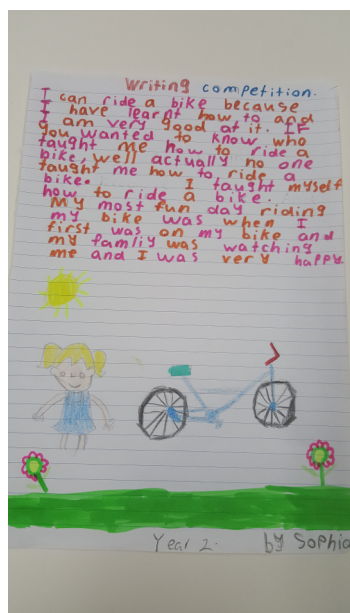 Writing competition.
I can ride a bike because
I have learnt how to and
I am very good at it. IF
you wanted to know who
taught me how to ride a
bike, well actually no one
taught me how to ride a
bike. I taught myself
how to ride a bike.
My most fun day riding
my bike was when I
first was on my bike and
my famliy was watching
me and I was very happy.
Year 2. by Sophia